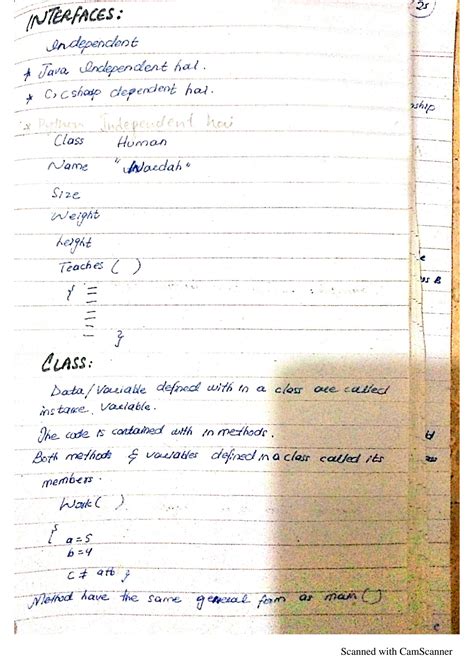 INTERFACES:
Independent
* Java Independent hai.
* C, C sharp dependent hai.
* Python Independent hai
Class Human
Name "Wardah"
Size
Weight
height
Teaches ( )
{
}
CLASS:
Data/Variable defined with in a class are called
instance variable.
The code is contained with in methods.
Both methods & variables defined in a class called its
members.
Work( )
{
a = 5
b = 4
C = a+b }
Method have the same general form as main ( )
Scanned with CamScanner